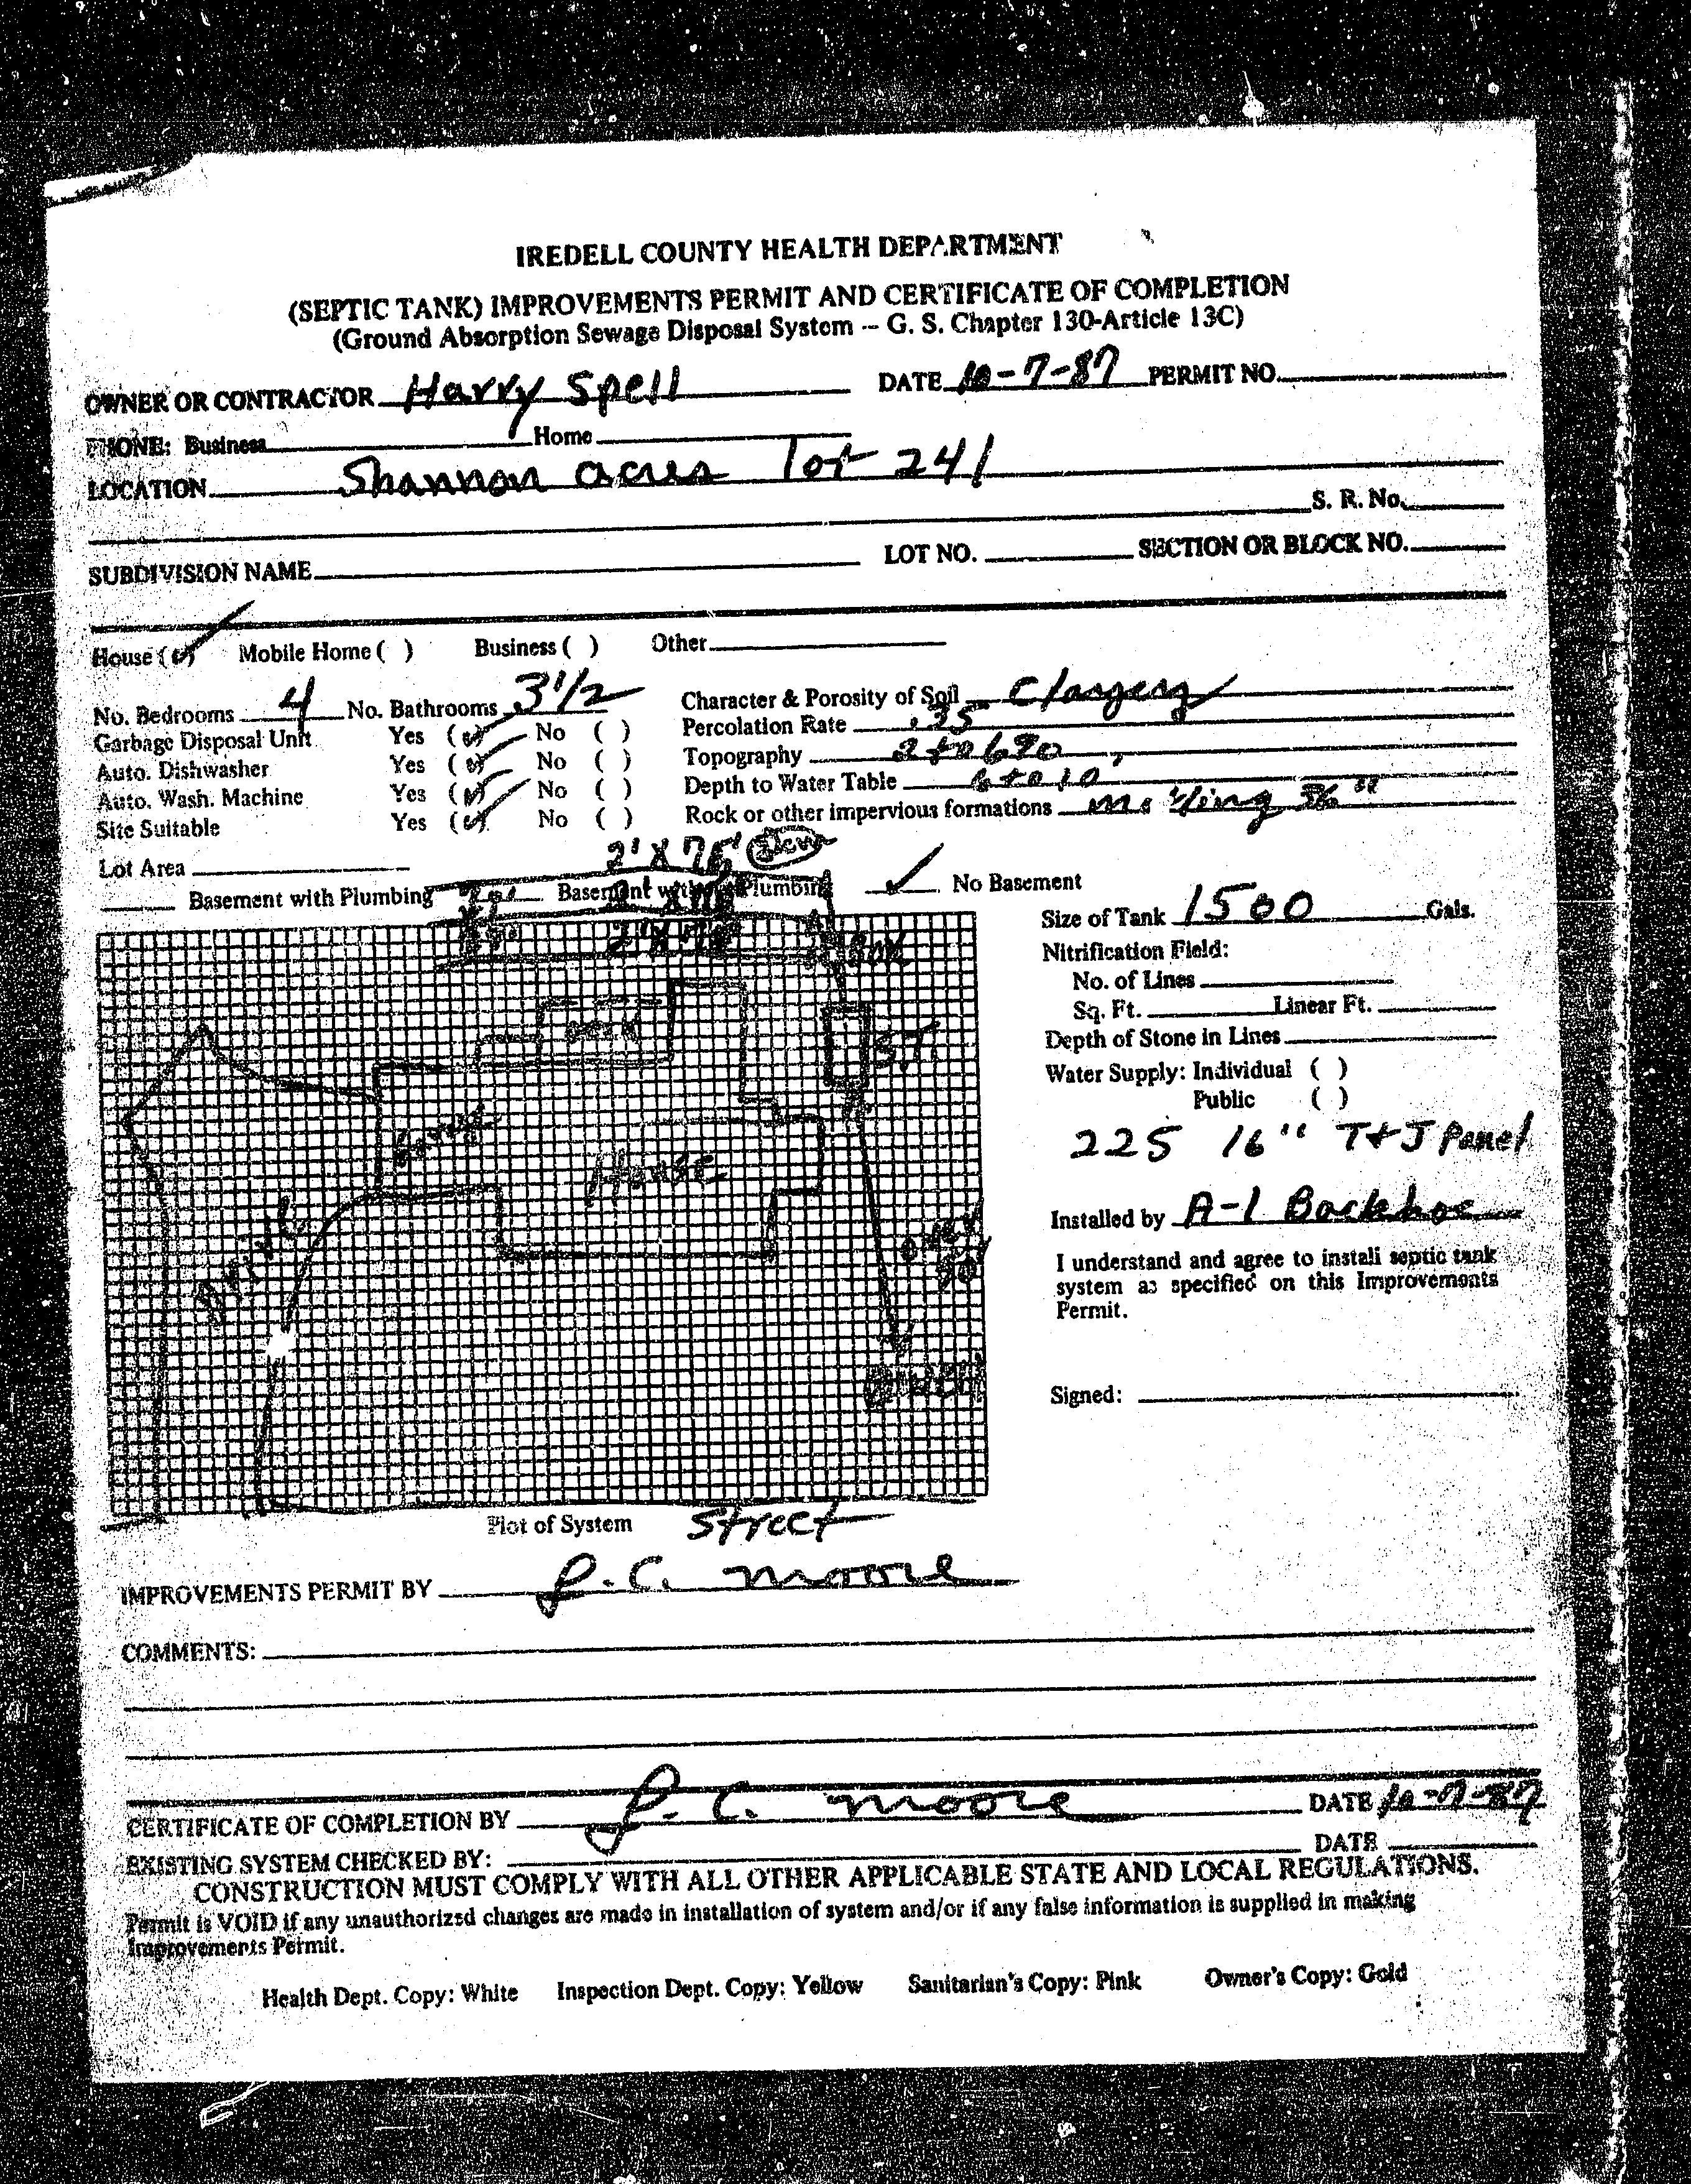 IREDELL COUNTY HEALTH DEPARTMENT
(SEPTIC TANK) IMPROVEMENTS PERMIT AND CERTIFICATE OF COMPLETION
(Ground Absorption Sewage Disposal System -- G. S. Chapter 130-Article 13C)
OWNER OR CONTRACTOR Harry Spell DATE 10-7-87 PERMIT NO.
PHONE: Business Home
LOCATION Shannon acres lot 241
S. R. No.
SUBDIVISION NAME LOT NO. SECTION OR BLOCK NO.
House (✓) Mobile Home ( ) Business ( ) Other
No. Bedrooms 4 No. Bathrooms 3 1/2 Character & Porosity of Soil
Garbage Disposal Unit Yes (✓) No ( ) Percolation Rate .35
Auto. Dishwasher Yes (✓) No ( ) Topography 2 to 6 %
Auto. Wash. Machine Yes (✓) No ( ) Depth to Water Table 6 to 10
Site Suitable Yes (✓) No ( ) Rock or other impervious formations 36"
Lot Area 2' X 75'
Basement with Plumbing Basement Plumbing ✓ No Basement
Size of Tank 1500 Gals.
2' X 75' Box
Nitrification Field:
No. of Lines
Sq. Ft. Linear Ft.
Depth of Stone in Lines
Water Supply: Individual ( )
Public ( )
S.T.
House
225 16" T & J Panel
Installed by A-1 Backhoe
I understand and agree to install septic tank
system as specified on this Improvements
Permit.
Signed:
Plot of System Street
IMPROVEMENTS PERMIT BY J. C. Moore
COMMENTS:
CERTIFICATE OF COMPLETION BY J. C. Moore DATE 10-7-87
EXISTING SYSTEM CHECKED BY: DATE
CONSTRUCTION MUST COMPLY WITH ALL OTHER APPLICABLE STATE AND LOCAL REGULATIONS.
Permit is VOID if any unauthorized changes are made in installation of system and/or if any false information is supplied in making
Improvements Permit.
Health Dept. Copy: White Inspection Dept. Copy: Yellow Sanitarian's Copy: Pink Owner's Copy: Gold